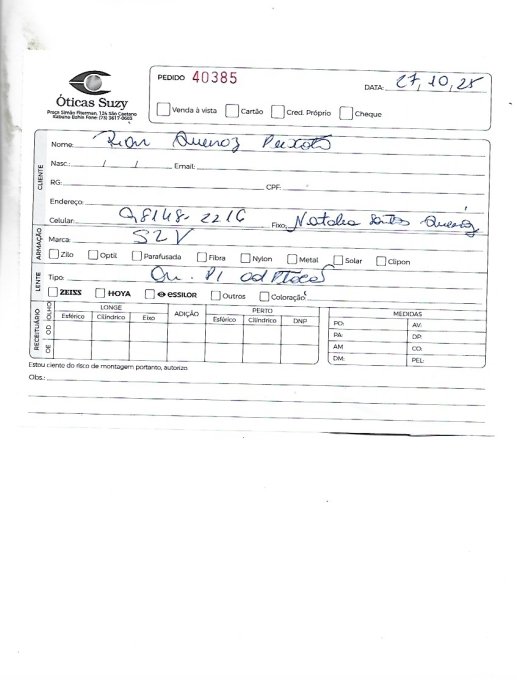 Óticas Suzy
Praça Simão Fherman, 124 São Caetano
Itabuna Bahia Fone: (73) 3617-0603
PEDIDO 40385
DATA: 27, 10, 25
Venda à vista Cartão Cred. Próprio Cheque
CLIENTE
Nome: Queiroz Peixoto
Nasc.: / / Email:
RG: CPF:
Endereço:
Celular: 98148-2216 Fixo: Natalia Santos Queiroz
ARMAÇÃO
Marca: SZV
Zilo Optil Parafusada Fibra Nylon Metal Solar Clipon
LENTE
Tipo:
ZEISS HOYA essilor Outros Coloração
RECEITUÁRIO
OLHO LONGE ADIÇÃO PERTO MEDIDAS
Esférico Cilíndrico Eixo Esférico Cilíndrico DNP
OD
OE
PO: AV:
PA: DP:
AM CO:
DM: PEL:
Estou ciente do risco de montagem portanto, autorizo
Obs.: